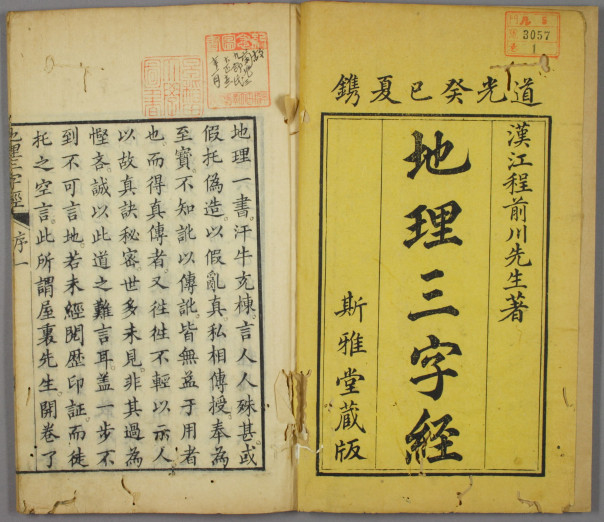 道光癸巳夏鐫
漢江程前川先生著
地理三字經
斯雅堂藏版
3057
1
地理一書汗牛充棟言人人殊甚或
假托偽造以假亂真私相傳授奉為
至寶不知訛以傳訛皆無益于用者
也而得真傳者又徃徃不輕以示人
以故真訣秘密世多未見非其過為
慳吝誠以此道之難言耳蓋一步不
到不可言地若未經閱歷印証而徒
托之空言此所謂屋裏先生開卷了
地理三字經
序
一